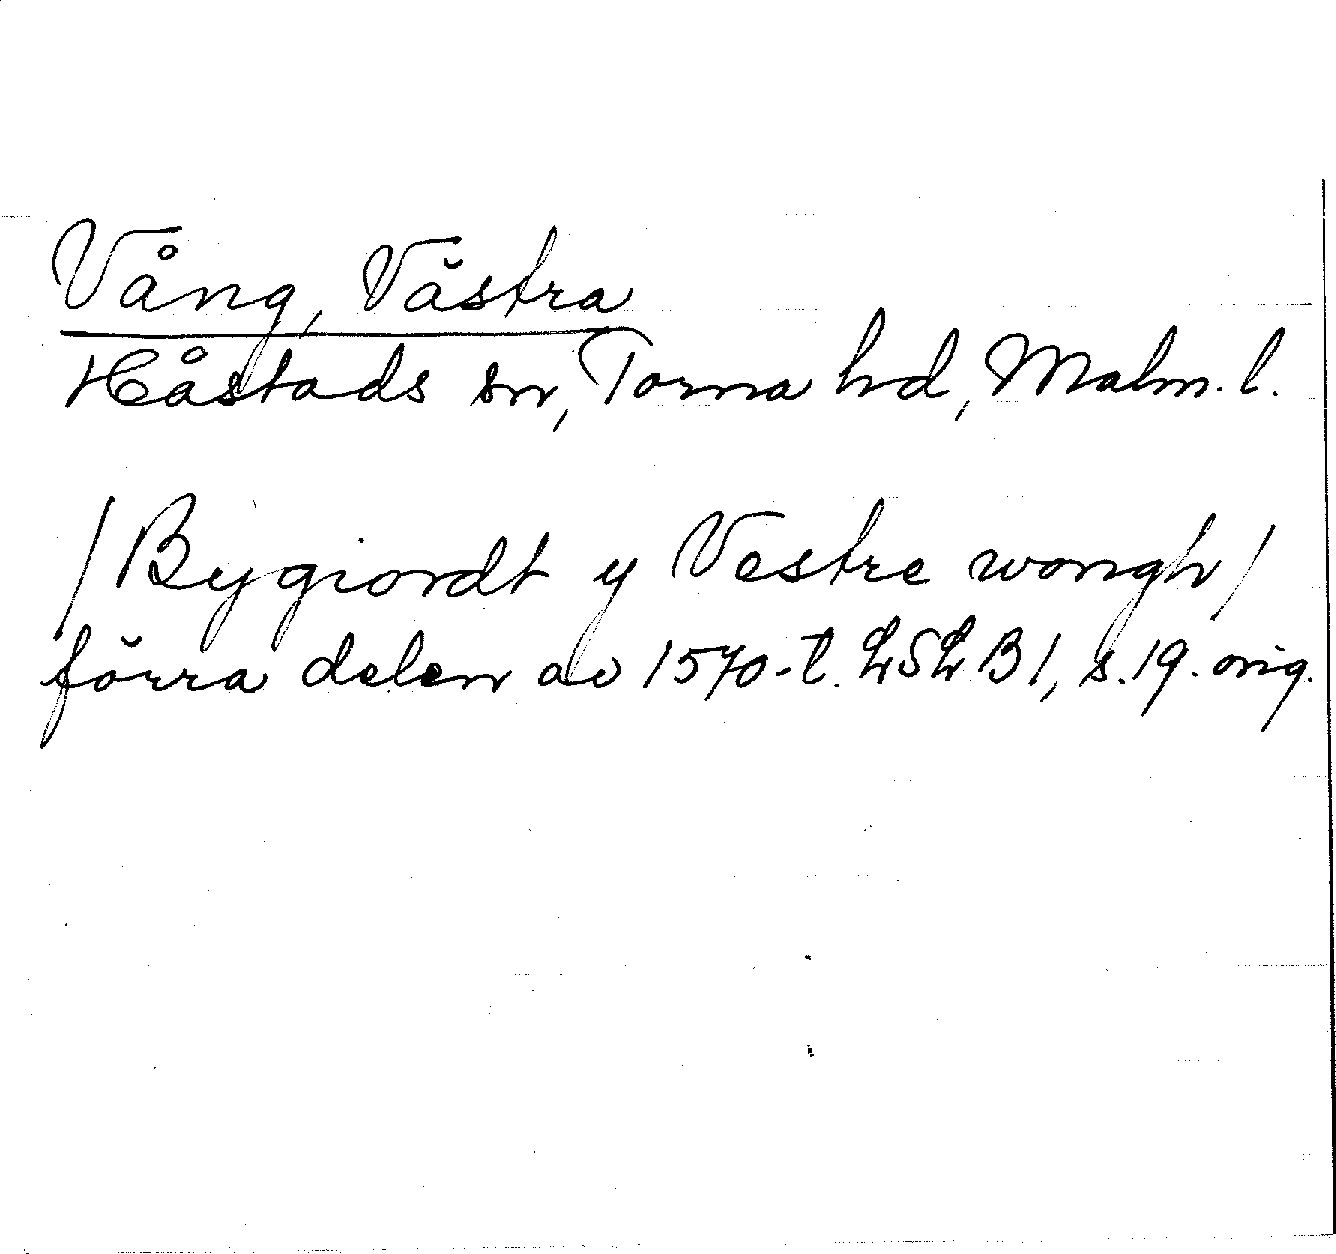 Vång, Västra
Håstads sn, Torna hd, Malm. l.
/Bygiordt y Vestre wongh/
förra delen av 1570-t. LSL B1, s. 19. orig.